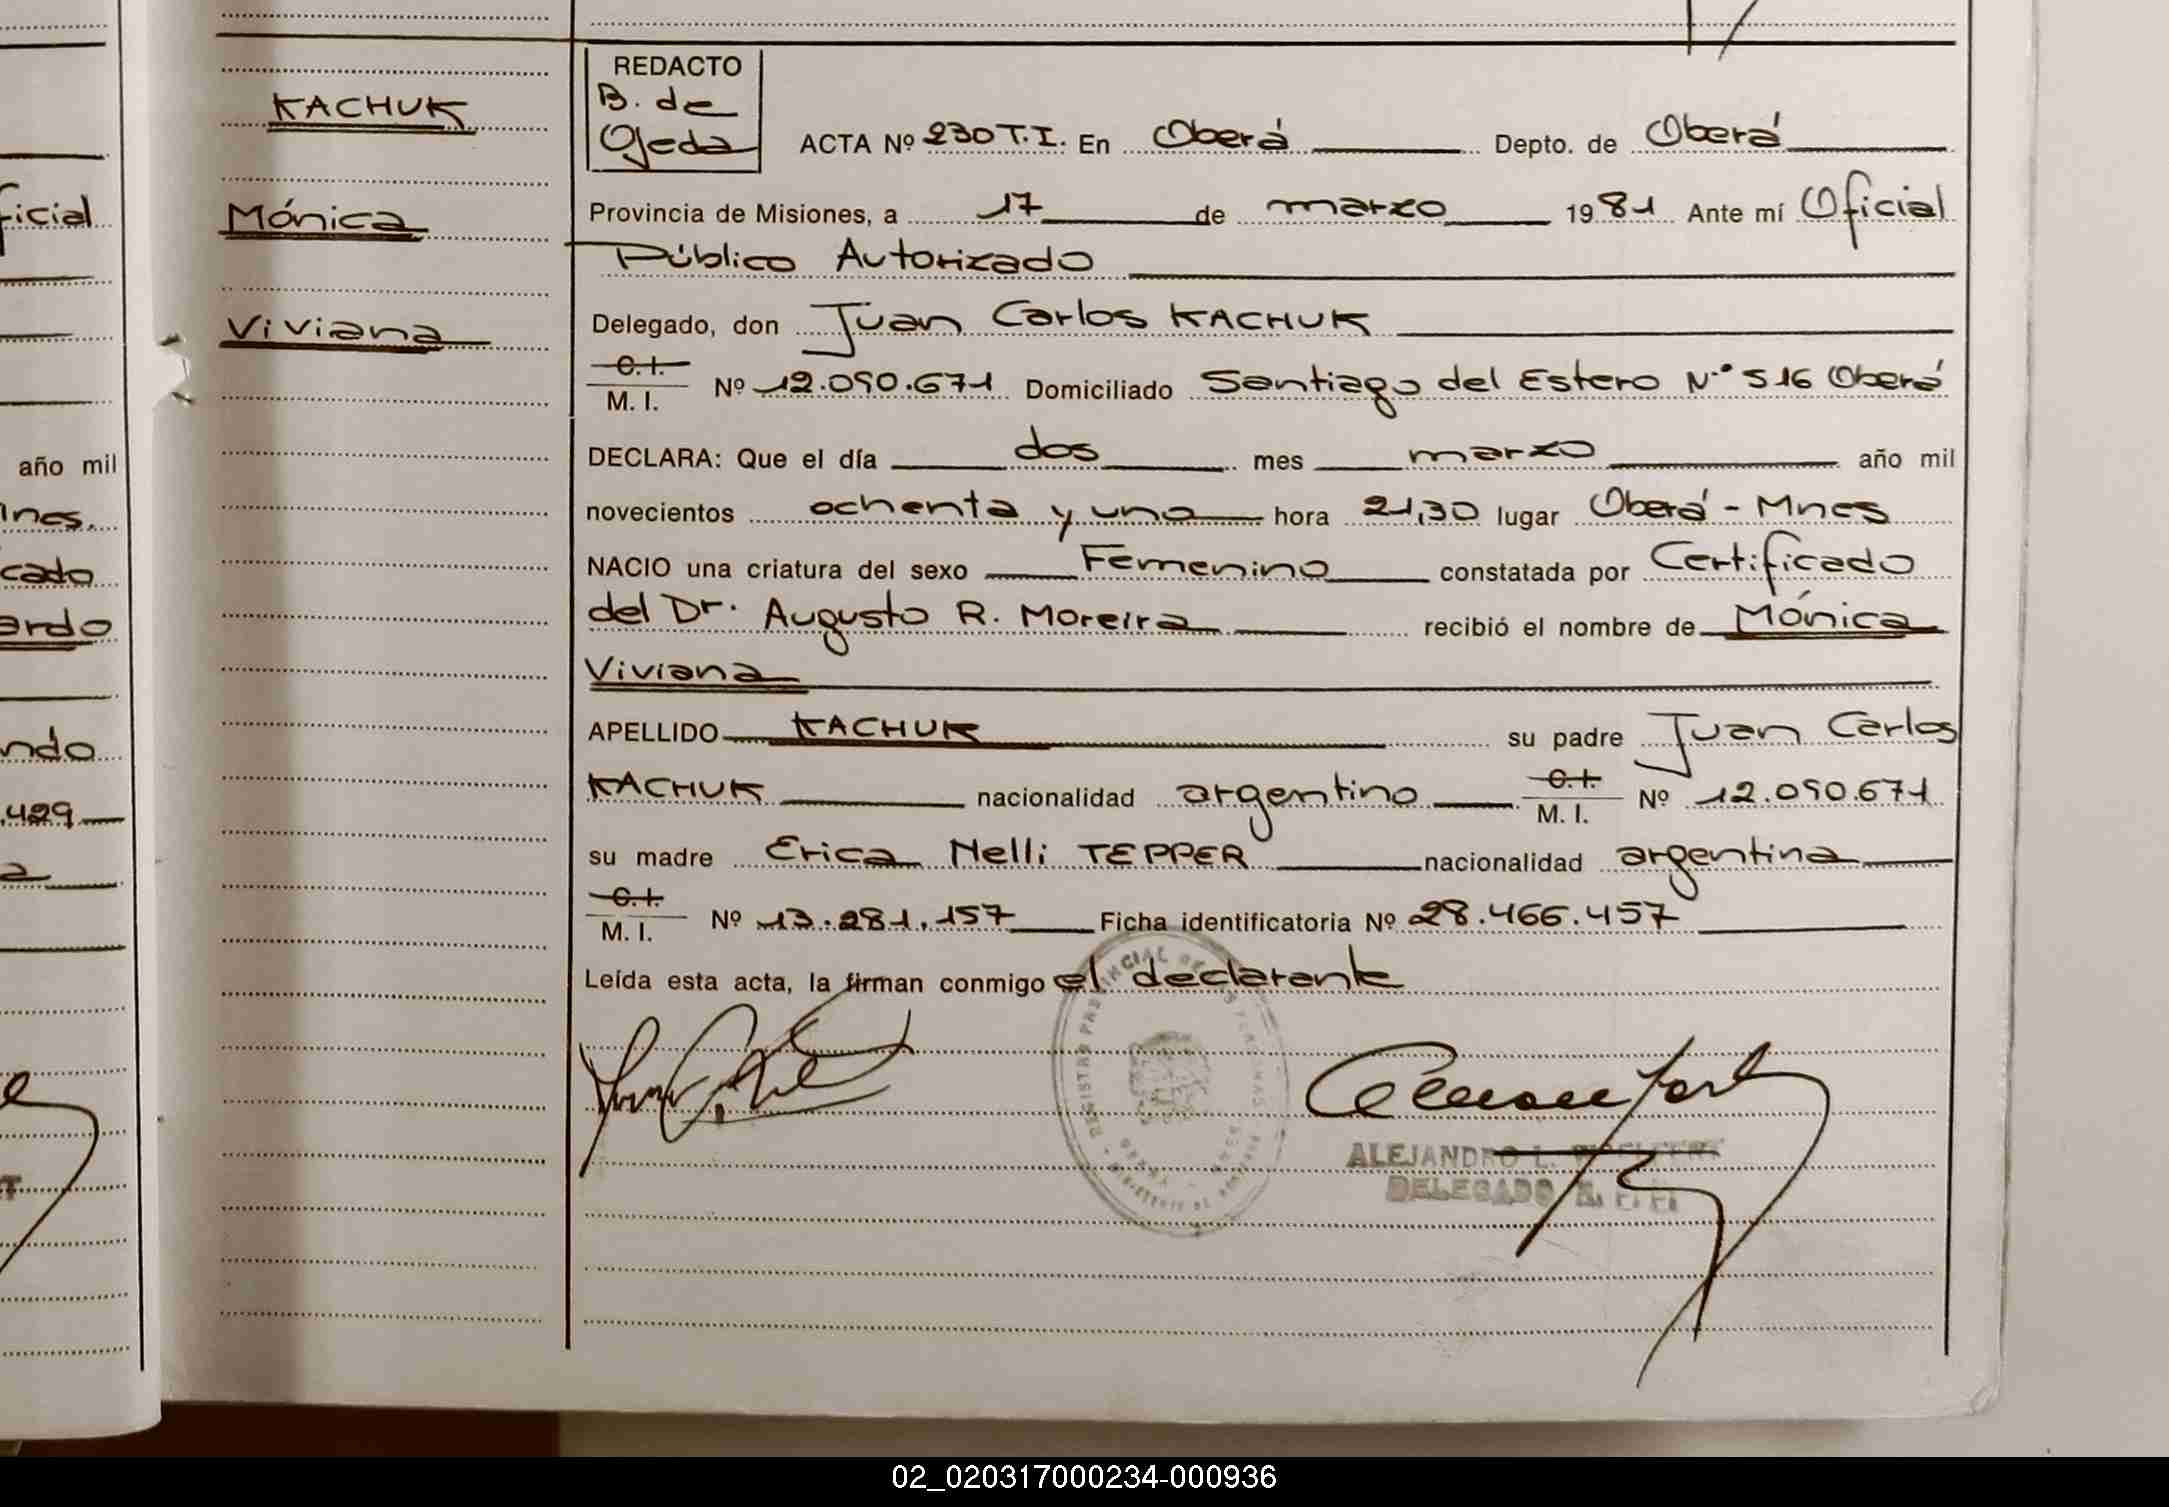 ficial
año mil
ines.
cado
ardo
ndo
.429
a
KACHUK
Mónica
Viviana
REDACTO
B. de
Ojeda
ACTA Nº 230 T.I. En Oberá Depto. de Oberá
Provincia de Misiones, a 17 de marzo 1981 Ante mí Oficial
Público Autorizado
Delegado, don Juan Carlos KACHUK
C.I.
M. I. Nº 12.090.671 Domiciliado Santiago del Estero N.º 516 Oberá
DECLARA: Que el día dos mes marzo año mil
novecientos ochenta y uno hora 21,30 lugar Oberá - Mnes
NACIO una criatura del sexo Femenino constatada por Certificado
del Dr. Augusto R. Moreira recibió el nombre de Mónica
Viviana
APELLIDO KACHUK su padre Juan Carlos
KACHUK nacionalidad argentino C.I. M. I. Nº 12.090.671
su madre Erica Nelli TEPPER nacionalidad argentina
C.I.
M. I. Nº 13.281.157 Ficha identificatoria Nº 28.466.457
Leída esta acta, la firman conmigo el declarante
ALEJANDRO L.
DELEGADO
02_020317000234-000936